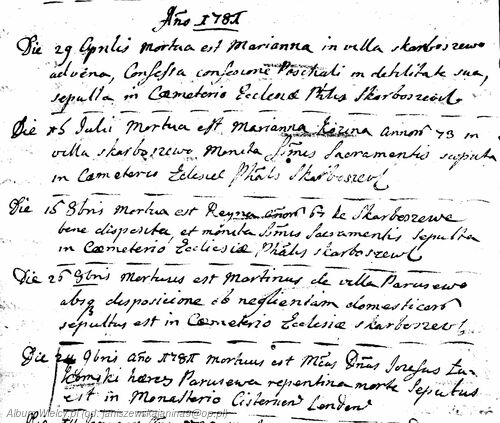 Año 1781
Die 29 Aprilis mortua est Marianna in villa skarboszewo
advena, Confessa confesione Paschali in debilitate sua,
sepulta in Cœmeterio Ecclesiæ Phlis Skarboszevo
Die 15 Julii mortua est Marianna annor 73 in
villa skarboszewo Monita Stmis Sacramentis sepulta
in Cœmeterio Eclesiæ Phalis Skarboszew
Die 15 8bris mortua est Reyna añor 67 de Skarboszewe
bene disposita, et monita Stmis Sacramentis sepulta
in Cœmeterio Ecclesiæ Phalis skarboszew
Die 25 8bris mortuus est Martinus de villa Parusewo
absq disposicione ob negligentiam domesticor
sepultus est in Cœmeterio Ecclesiæ skarboszew
Die 24 9bris año 1781 mortuus est Mcus Dnus Josefus
hæres Parusewa repentina morte seputus
est in Monasterio Cistercien Londen
AlbumyWielcy.pl (od: janiszewskajanina9@op.pl)